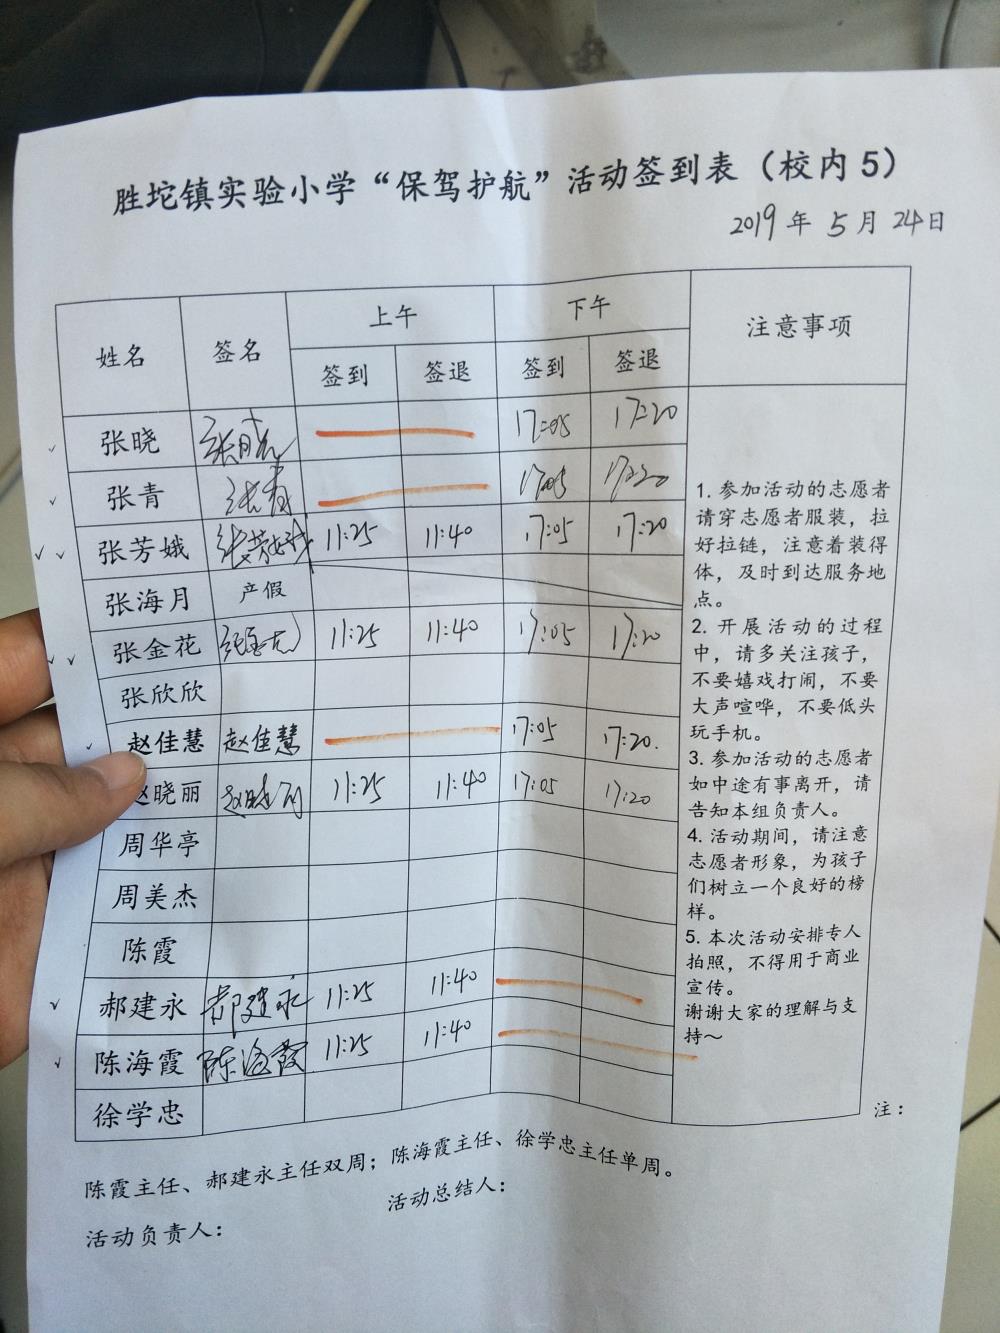 胜坨镇实验小学“保驾护航”活动签到表（校内5）
2019年 5月 24日
姓名 签名 上午 下午 注意事项
签到 签退 签到 签退
张晓 张晓 17:05 17:20
张青 张青 17:05 17:20
张芳娥 张芳娥 11:25 11:40 17:05 17:20
张海月 产假
张金花 张金花 11:25 11:40 17:05 17:20
张欣欣
赵佳慧 赵佳慧 17:05 17:20.
赵晓丽 赵晓丽 11:25 11:40 17:05 17:20
周华亭
周美杰
陈霞
郝建永 郝建永 11:25 11:40
陈海霞 陈海霞 11:25 11:40
徐学忠
1. 参加活动的志愿者
请穿志愿者服装，拉
好拉链，注意着装得
体，及时到达服务地
点。
2. 开展活动的过程
中，请多关注孩子，
不要嬉戏打闹，不要
大声喧哗，不要低头
玩手机。
3. 参加活动的志愿者
如中途有事离开，请
告知本组负责人。
4. 活动期间，请注意
志愿者形象，为孩子
们树立一个良好的榜
样。
5. 本次活动安排专人
拍照，不得用于商业
宣传。
谢谢大家的理解与支
持～
注：
陈霞主任、郝建永主任双周；陈海霞主任、徐学忠主任单周。
活动负责人： 活动总结人：